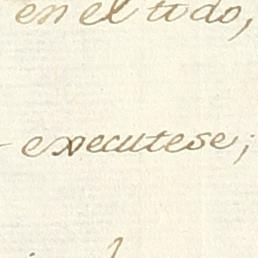 en el todo,
executese;